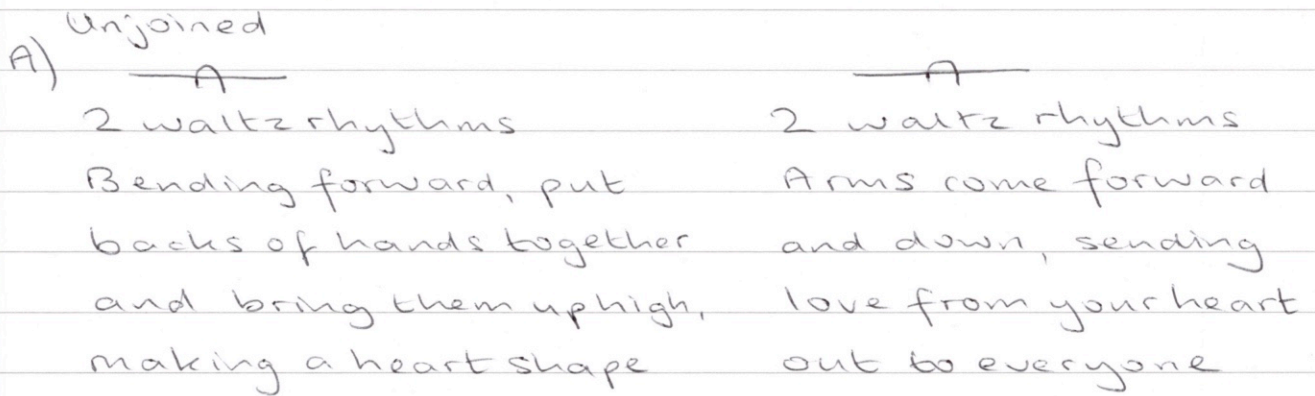 Unjoined
A)
2 waltz rhythms
Bending forward, put
backs of hands together
and bring them up high,
making a heart shape
2 waltz rhythms
Arms come forward
and down, sending
love from your heart
out to everyone